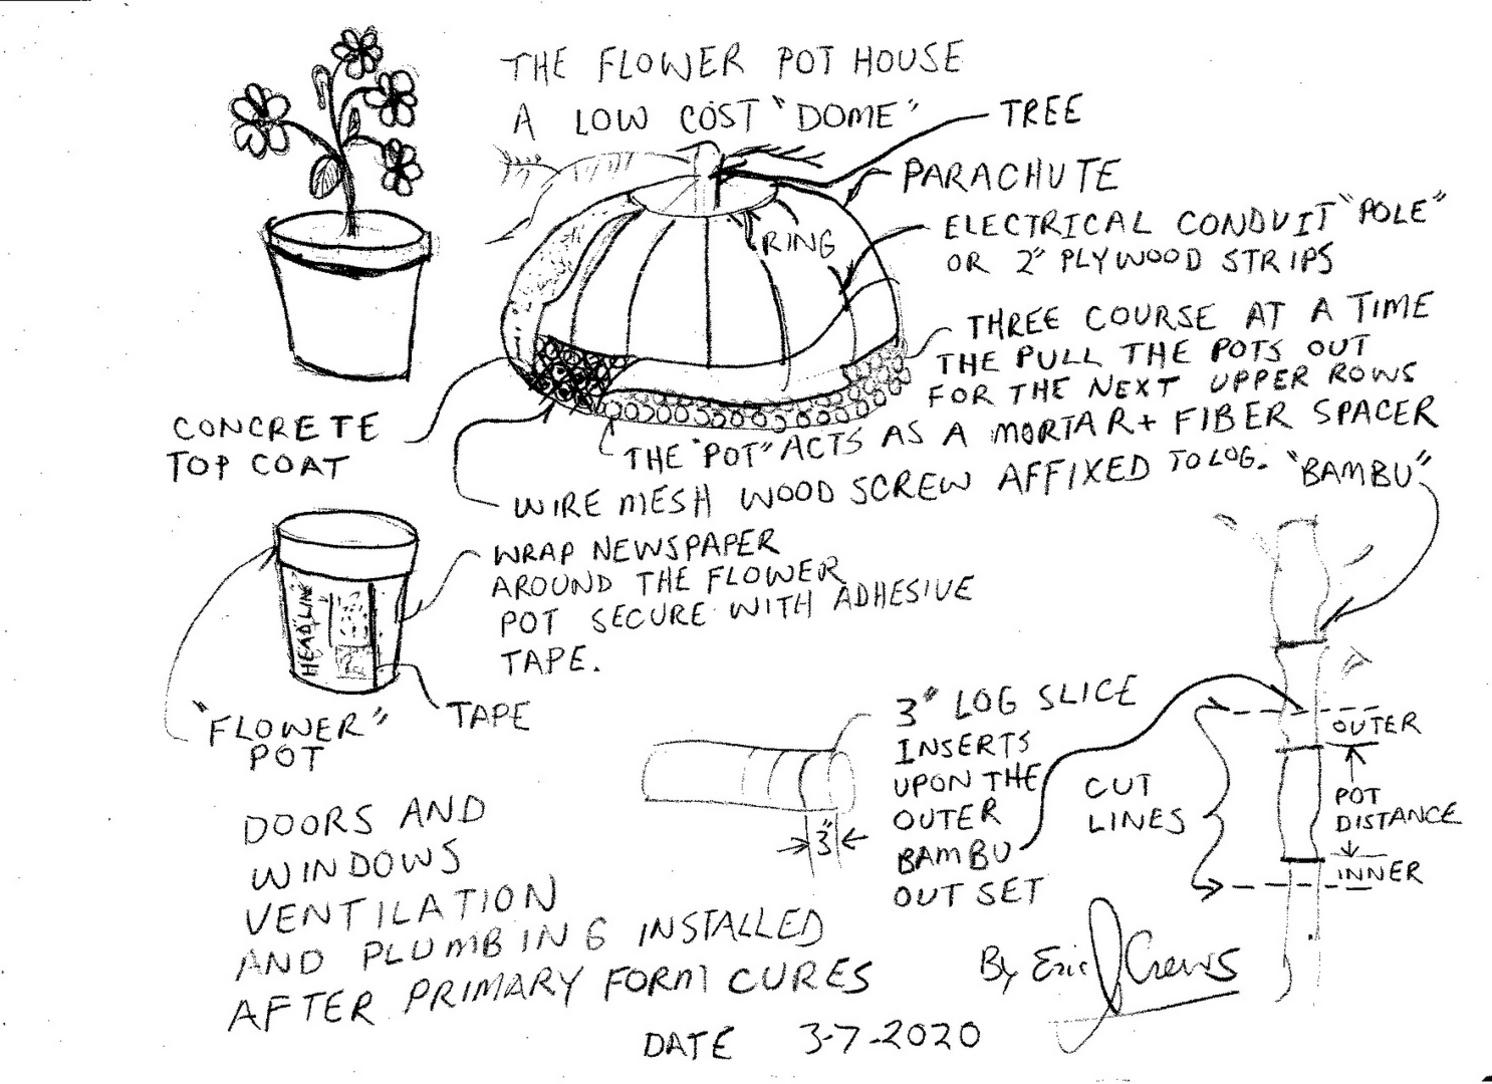 THE FLOWER POT HOUSE
A LOW COST "DOME"
TREE
PARACHUTE
RING
ELECTRICAL CONDUIT "POLE"
OR 2" PLYWOOD STRIPS
THREE COURSE AT A TIME
THE PULL THE POTS OUT
FOR THE NEXT UPPER ROWS
THE "POT" ACTS AS A MORTAR + FIBER SPACER
CONCRETE
TOP COAT
WIRE MESH WOOD SCREW AFFIXED TO LOG.
"BAMBU"
WRAP NEWSPAPER
AROUND THE FLOWER
POT SECURE WITH ADHESIVE
TAPE.
HEADLINE
"FLOWER"
POT
TAPE
3" LOG SLICE
INSERTS
UPON THE
OUTER
BAMBU
OUT SET
3"
CUT
LINES
OUTER
POT
DISTANCE
INNER
DOORS AND
WINDOWS
VENTILATION
AND PLUMBING INSTALLED
AFTER PRIMARY FORM CURES
By Eric J Crews
DATE 3-7-2020